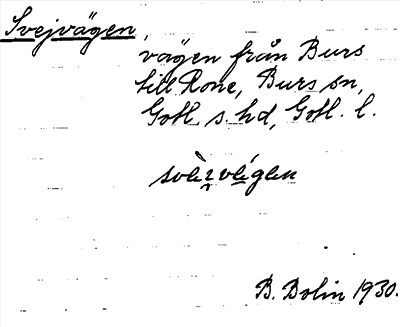 Svejvägen,
vägen från Burs
till Rone, Burs sn,
Gotl. s. hd, Gotl. l.
B. Bolin 1930.